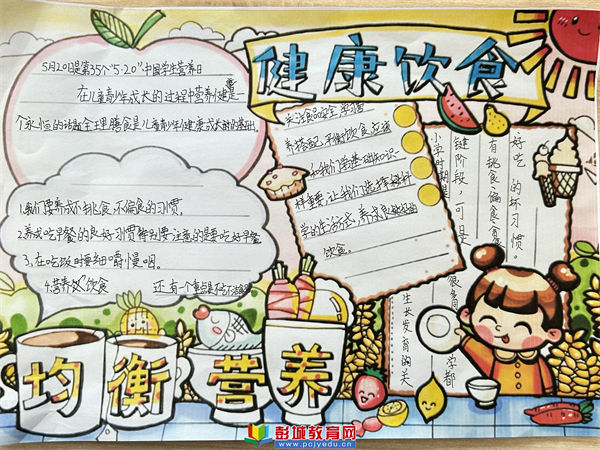 健康饮食
5月20日是第35个“5·20”中国学生营养日
在儿童青少年成长的过程中营养健康是一
个永恒的话题合理膳食是儿童青少年健康成长的基础。
1.我们要养成不挑食、不偏食的习惯，
2.养成吃早餐的良好习惯特别要注意的是要吃好早餐
3、在吃饭时要细嚼慢咽。
4.营养饮饮食 还有一个重点是
关注食品安全 学习营
养搭配，平衡饮食应该
和我们学基础知识一
样重要，让我们选择健
的生活方式，养成良好的
饮食。
小学时期是
键阶段，可是
有挑食、偏食、
好吃 的坏习惯。
很多
学都
生长发育的关
均衡营养
彭城教育网
www.pcjyedu.cn